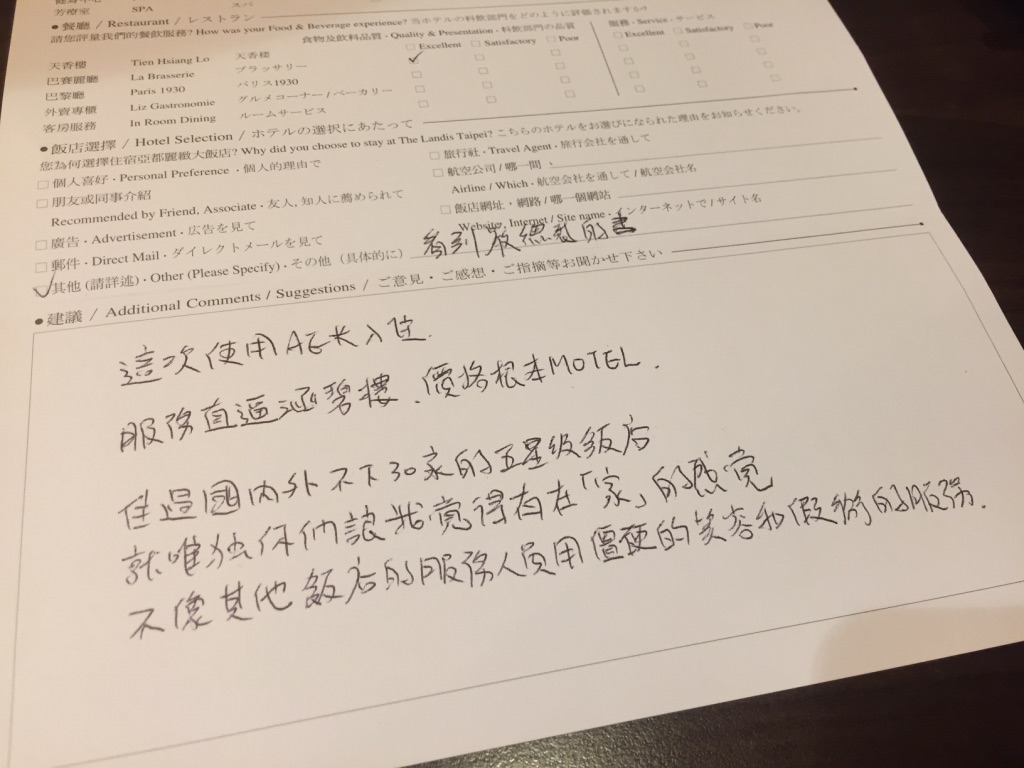 芳療室 SPA スパ
●餐廳 / Restaurant / レストラン
請您評量我們的餐飲服務? How was your Food & Beverage experience? 当ホテルの料飲部門をどのように評価されますか?
食物及飲料品質・Quality & Presentation・料飲部門の品質 服務・Service・サービス
□ Excellent □ Satisfactory □ Poor □ Excellent □ Satisfactory □ Poor
天香樓 Tien Hsiang Lo 天香樓 ✓ □ □ □ □ □
巴賽麗廳 La Brasserie ブラッサリー □ □ □ □ □ □
巴黎廳 Paris 1930 パリス1930 □ □ □ □ □ □
外賣專櫃 Liz Gastronomie グルメコーナー / ベーカリー □ □ □ □ □ □
客房服務 In Room Dining ルームサービス
●飯店選擇 / Hotel Selection / ホテルの選択にあたって
您為何選擇住宿亞都麗緻大飯店? Why did you choose to stay at The Landis Taipei? こちらのホテルをお選びになられた理由をお知らせください。
□ 個人喜好・Personal Preference・個人的理由で
□ 朋友或同事介紹
Recommended by Friend, Associate・友人, 知人に薦められて
□ 廣告・Advertisement・広告を見て
□ 郵件・Direct Mail・ダイレクトメールを見て
✓其他 (請詳述)・Other (Please Specify)・その他 (具体的に) 看到嚴總裁的書
□ 旅行社・Travel Agent・旅行会社を通して
□ 航空公司 / 哪一間、
Airline / Which・航空会社を通して / 航空会社名
□ 飯店網址・網路 / 哪一個網站
Website, Internet / Site name・インターネットで / サイト名
●建議 / Additional Comments / Suggestions / ご意見・ご感想・ご指摘等お聞かせ下さい
這次使用AE卡入住.
服務直逼涵碧樓、價格根本MOTEL.
住過國內外不下30家的五星級飯店
就唯独你們讓我覺得有在「家」的感覺
不像其他飯店的服務人員用僵硬的笑容和假掰的服務.